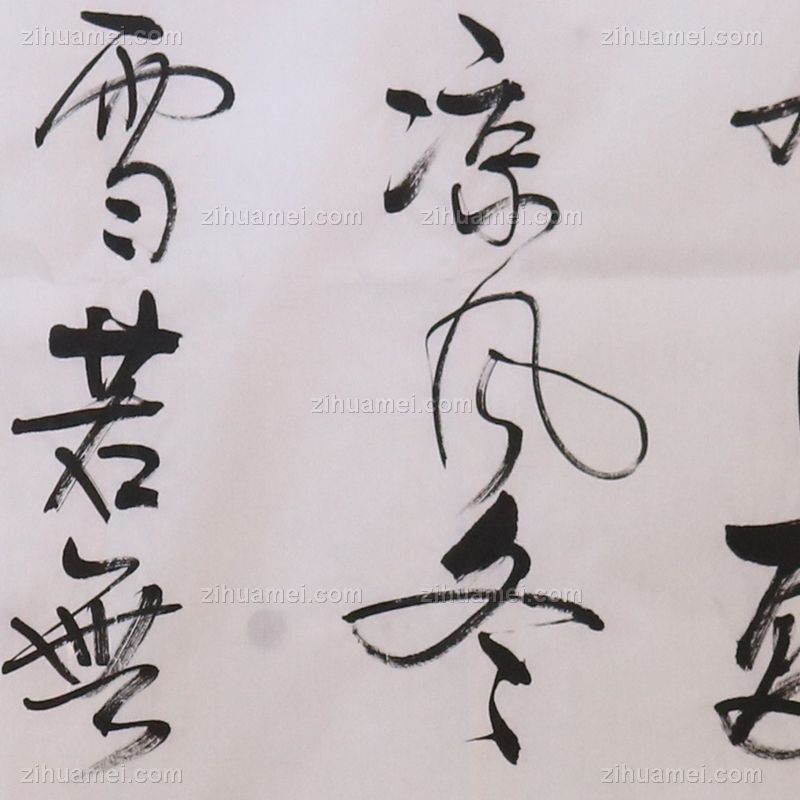 夏
凉风冬
雪若無
zihuamei.com zihuamei.com
zihuamei.com zihuamei.com
zihuamei.com
zihuamei.com zihuamei.com
zihuamei.com zihuamei.com